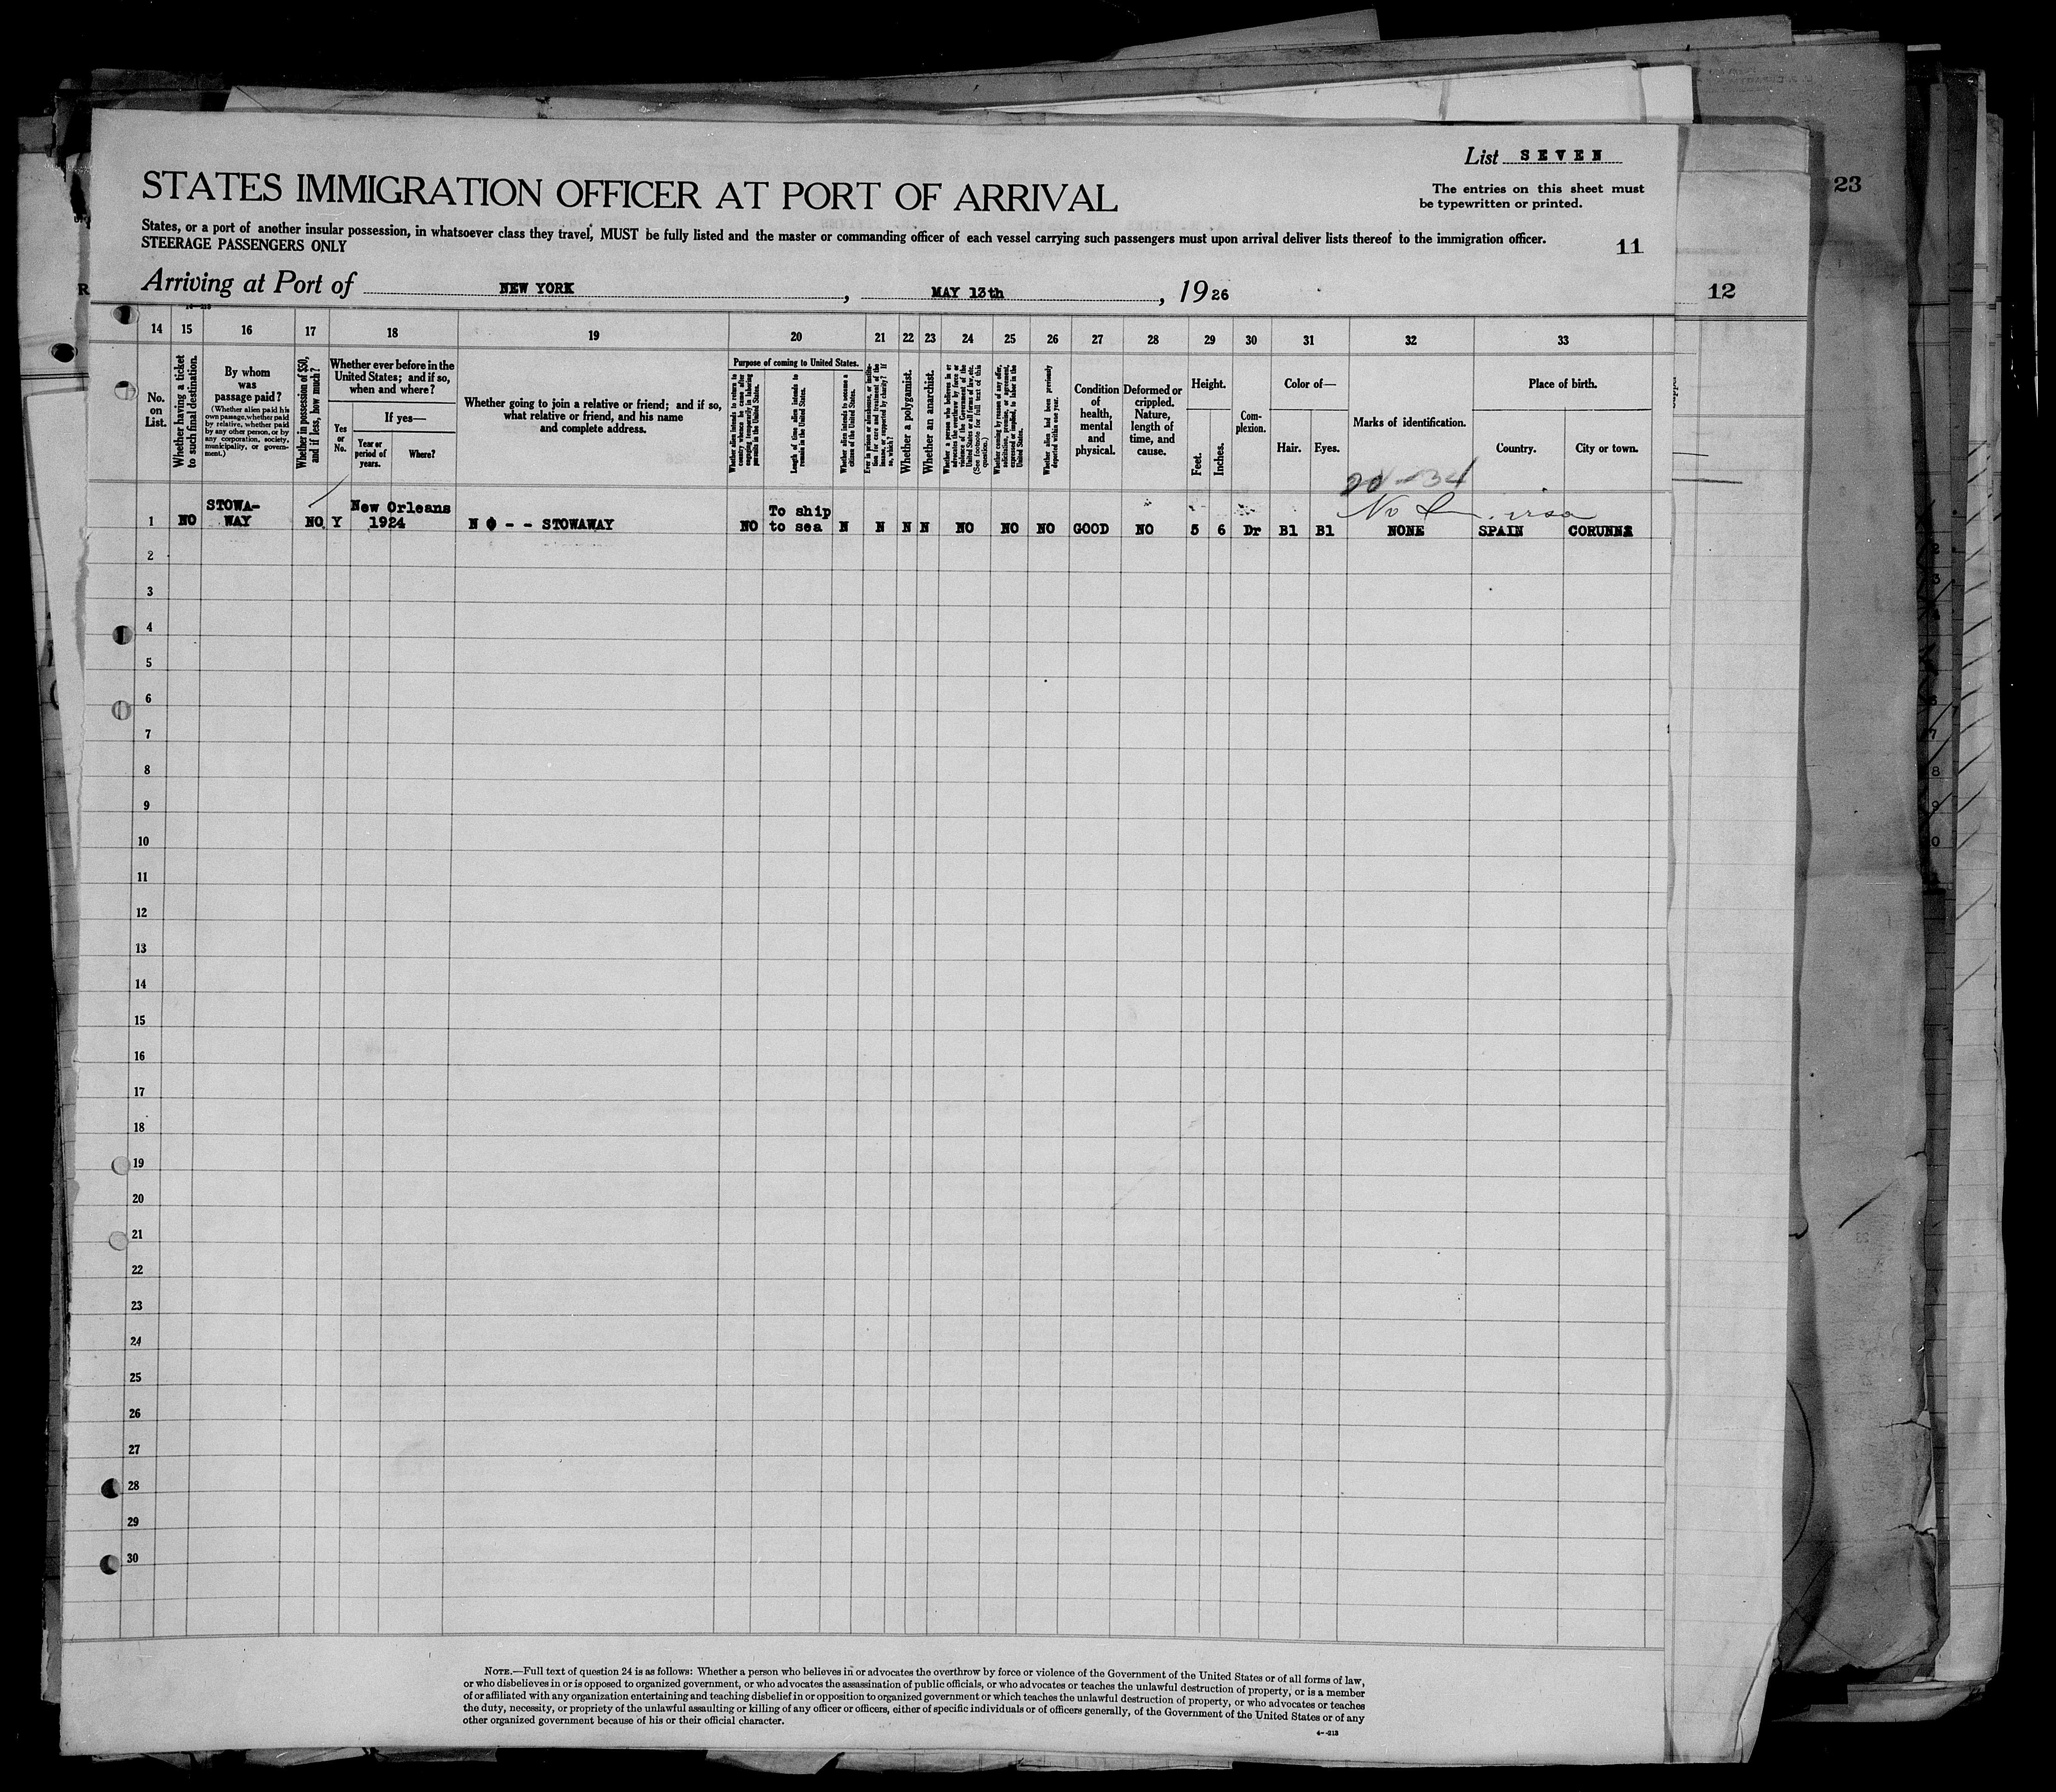 List SEVEN
STATES IMMIGRATION OFFICER AT PORT OF ARRIVAL
The entries on this sheet must
be typewritten or printed.
States, or a port of another insular possession, in whatsoever class they travel, MUST be fully listed and the master or commanding officer of each vessel carrying such passengers must upon arrival deliver lists thereof to the immigration officer.
STEERAGE PASSENGERS ONLY
11
Arriving at Port of NEW YORK, MAY 13th, 1926
12
23
14 15 16 17 18 19 20 21 22 23 24 25 26 27 28 29 30 31 32 33
No.
on
List.
Whether having a ticket
to such final destination.
By whom
was
passage paid?
(Whether alien paid his
own passage, whether paid
by relative, whether paid
by any other person, or by
any corporation, society,
municipality, or govern-
ment.)
Whether in possession of $50,
and if less, how much?
Whether ever before in the
United States; and if so,
when and where?
Yes
or
No.
If yes—
Year or
period of
years.
Where?
Whether going to join a relative or friend; and if so,
what relative or friend, and his name
and complete address.
Purpose of coming to United States.
Whether alien intends to return to
country whence he came after
engaging temporarily in laboring
pursuits in the United States.
Length of time alien intends to
remain in the United States.
Whether alien intends to become a
citizen of the United States.
Ever in prison or almshouse, or institu-
tion for care and treatment of the
insane, or supported by charity? If
so, which?
Whether a polygamist.
Whether an anarchist.
Whether a person who believes in or
advocates the overthrow by force or
violence of the Government of the
United States or all forms of law, etc.
(See footnote for full text of this
question.)
Whether coming by reason of any offer,
solicitation, promise, or agreement,
expressed or implied, to labor in the
United States.
Whether alien had been previously
deported within one year.
Condition
of
health,
mental
and
physical.
Deformed or
crippled.
Nature,
length of
time, and
cause.
Height.
Feet.
Inches.
Com-
plexion.
Color of—
Hair.
Eyes.
Marks of identification.
Place of birth.
Country.
City or town.
20-34
No
1 NO STOWA-
WAY NO Y New Orleans
1924 NO - - STOWAWAY NO To ship
to sea N N N N NO NO NO GOOD NO 5 6 Dr Bl Bl NONE SPAIN CORUNNA
2
3
4
5
6
7
8
9
10
11
12
13
14
15
16
17
18
19
20
21
22
23
24
25
26
27
28
29
30
NOTE.—Full text of question 24 is as follows: Whether a person who believes in or advocates the overthrow by force or violence of the Government of the United States or of all forms of law,
or who disbelieves in or is opposed to organized government, or who advocates the assassination of public officials, or who advocates or teaches the unlawful destruction of property, or is a member
of or affiliated with any organization entertaining and teaching disbelief in or opposition to organized government or which teaches the unlawful destruction of property, or who advocates or teaches
the duty, necessity, or propriety of the unlawful assaulting or killing of any officer or officers, either of specific individuals or of officers generally, of the Government of the United States or of any
other organized government because of his or their official character.